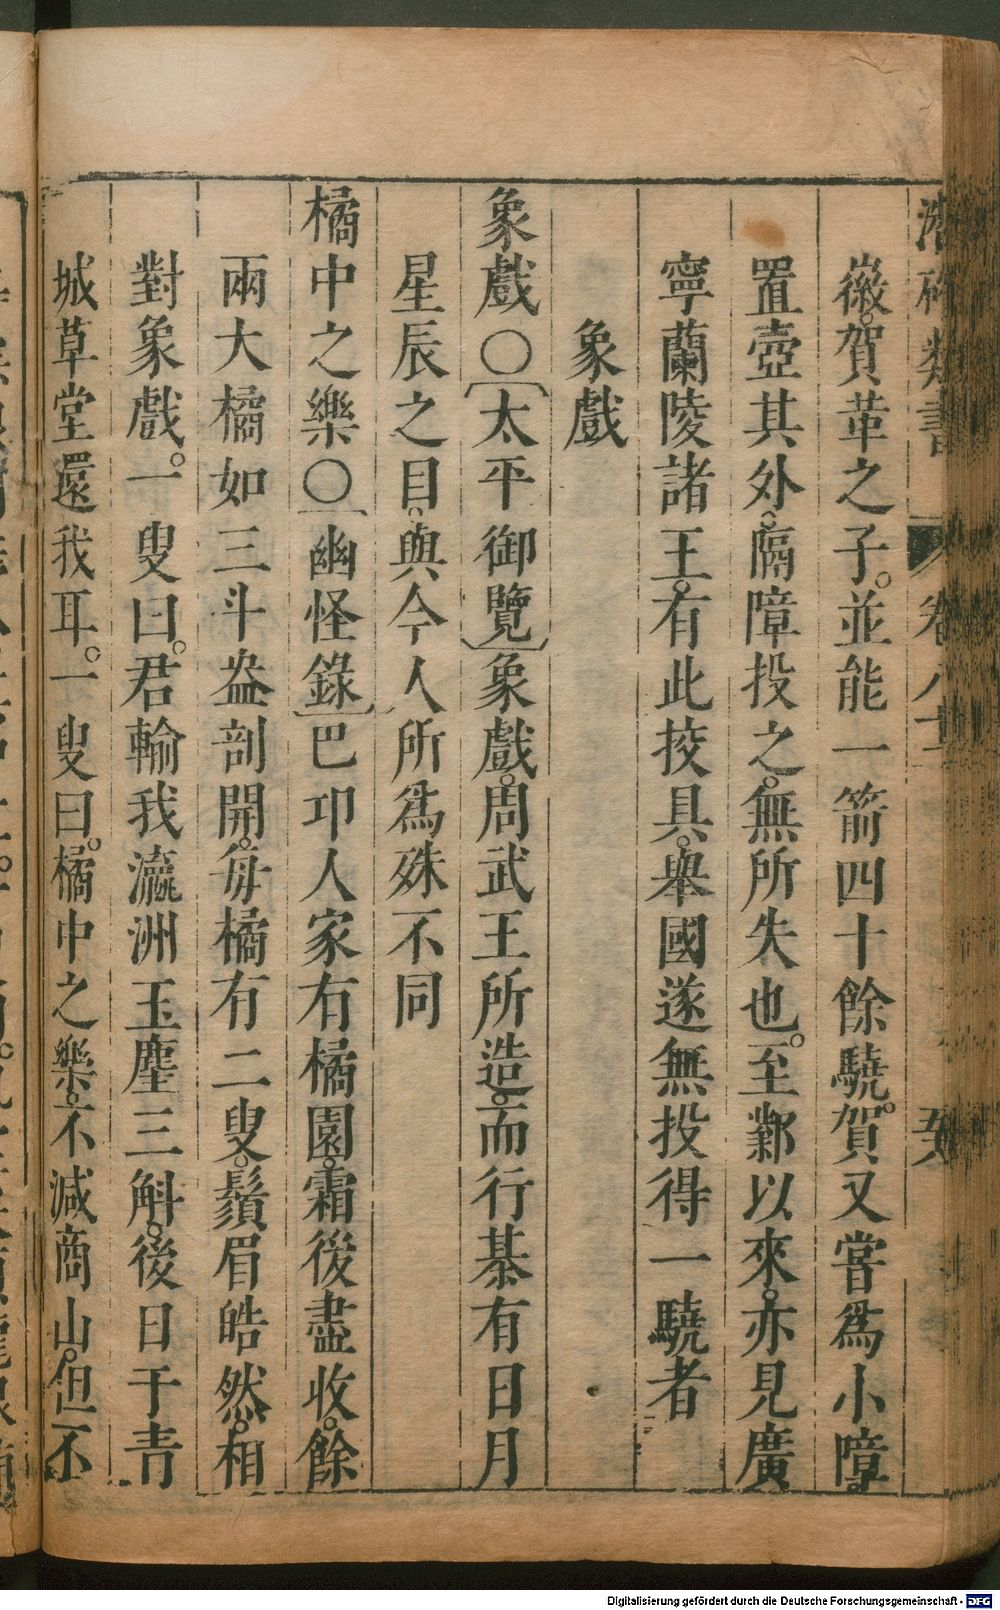 潛確類書 卷八十 五
徽賀革之子。並能一箭四十餘驍。賀又嘗爲小障。
置壺其外。隔障投之。無所失也。至鄴以來。亦見廣
寧蘭陵諸王。有此挍具。舉國遂無投得一驍者
象戲
象戲○〔太平御覽〕象戲。周武王所造。而行棊有日月
星辰之目。與今人所爲殊不同
橘中之樂○〔幽怪錄〕巴卭人家有橘園。霜後盡收。餘
兩大橘如三斗盎剖開。每橘有二叟。鬚眉皓然。相
對象戲。一叟曰。君輸我瀛洲玉塵三斛。後日于青
城草堂還我耳。一叟曰。橘中之樂。不減商山。但不
Digitalisierung gefördert durch die Deutsche Forschungsgemeinschaft - DFG